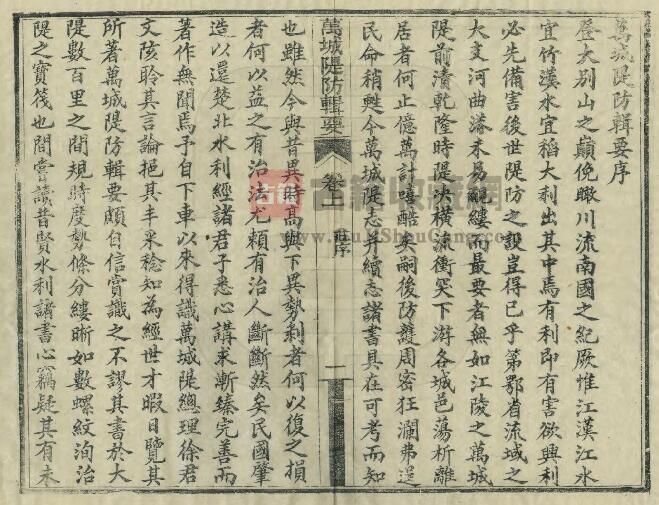 萬城隄防輯要序
登大别山之巔俛瞰川流南國之紀厥惟江漢江水
宜竹漢水宜稻大利出其中焉有利即有害欲興利
必先備害後世隄防之設豈得已乎第鄂省流域之
大支河曲瀦未易覼縷而最要者無如江陵之萬城
隄前清乾隆時隄决橫流衝突下游各城邑蕩析離
居者何止億萬計嘻酷矣嗣後防護周密狂瀾弗逞
民命稍甦今萬城隄志并續志諸書具在可考而知
萬城隄防輯要
卷上
序
一
也雖然今與昔異時高與下異勢剥者何以復之損
者何以益之有治法尤賴有治人斷斷然矣民國肇
造以還楚北水利經諸君子悉心講求漸臻完善而
著作無聞焉予自下車以來得識萬城隄總理徐君
文陔聆其言論挹其丰采稔知為經世才暇日覽其
所著萬城隄防輯要頗自信賞識之不謬其書於大
隄數百里之間規時度勢條分縷晰如數螺紋洵治
隄之寶筏也間嘗讀昔賢水利諸書心竊疑其有未